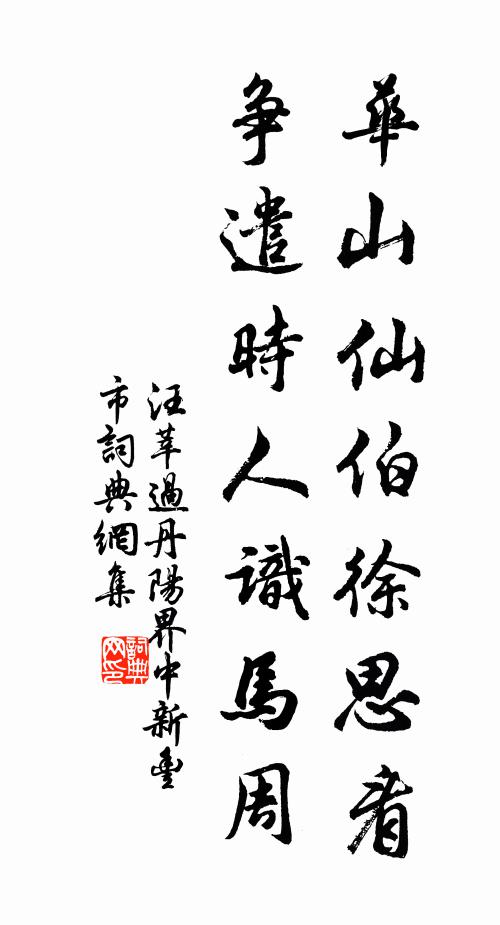 華山仙伯徐思者
爭遣時人識馬周
汪莘過丹陽界中新豐
市詞典網集
詞典
网印